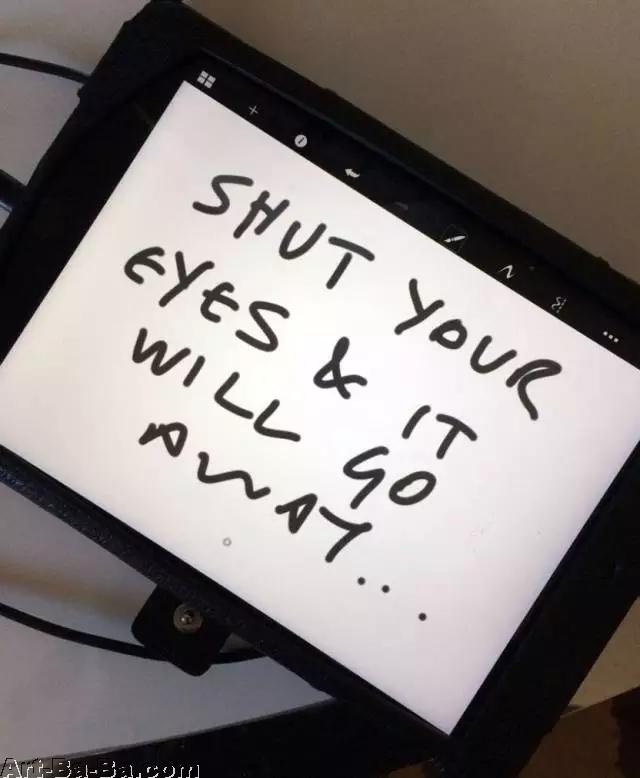 SHUT YOUR
EYES & IT
WILL GO
AWAY...
Art-Ba-Ba.com